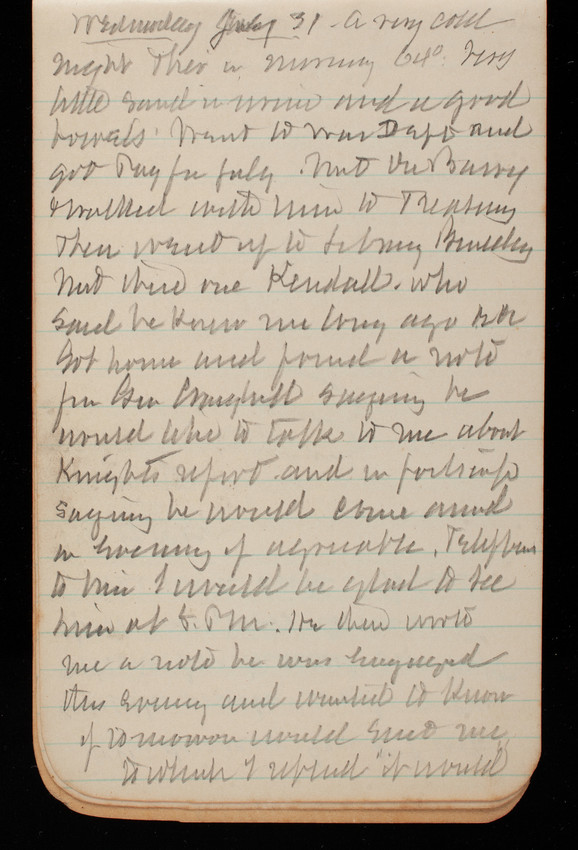 Wednesday July 31 - A very cold
night this a morning 64°. Very
little sand in urine and a good
bowels. Went to War Dept and
got Pay for July. Met Dr Barry
& walked with him to Treasury
Then went up to Library Building
Met there one Kendall. who
said he knew me long ago RR
Got home and found a note
for Gen Craighill saying he
would like to talk to me about
Knights report and in postscript
saying he would come around
in evening if agreeable. Telephone
to him I would be glad to see
him at 8. P.M. He then wrote
me a note he was engaged
this evening and wanted to know
if tomorrow would suit me,
to which I replied "it would"